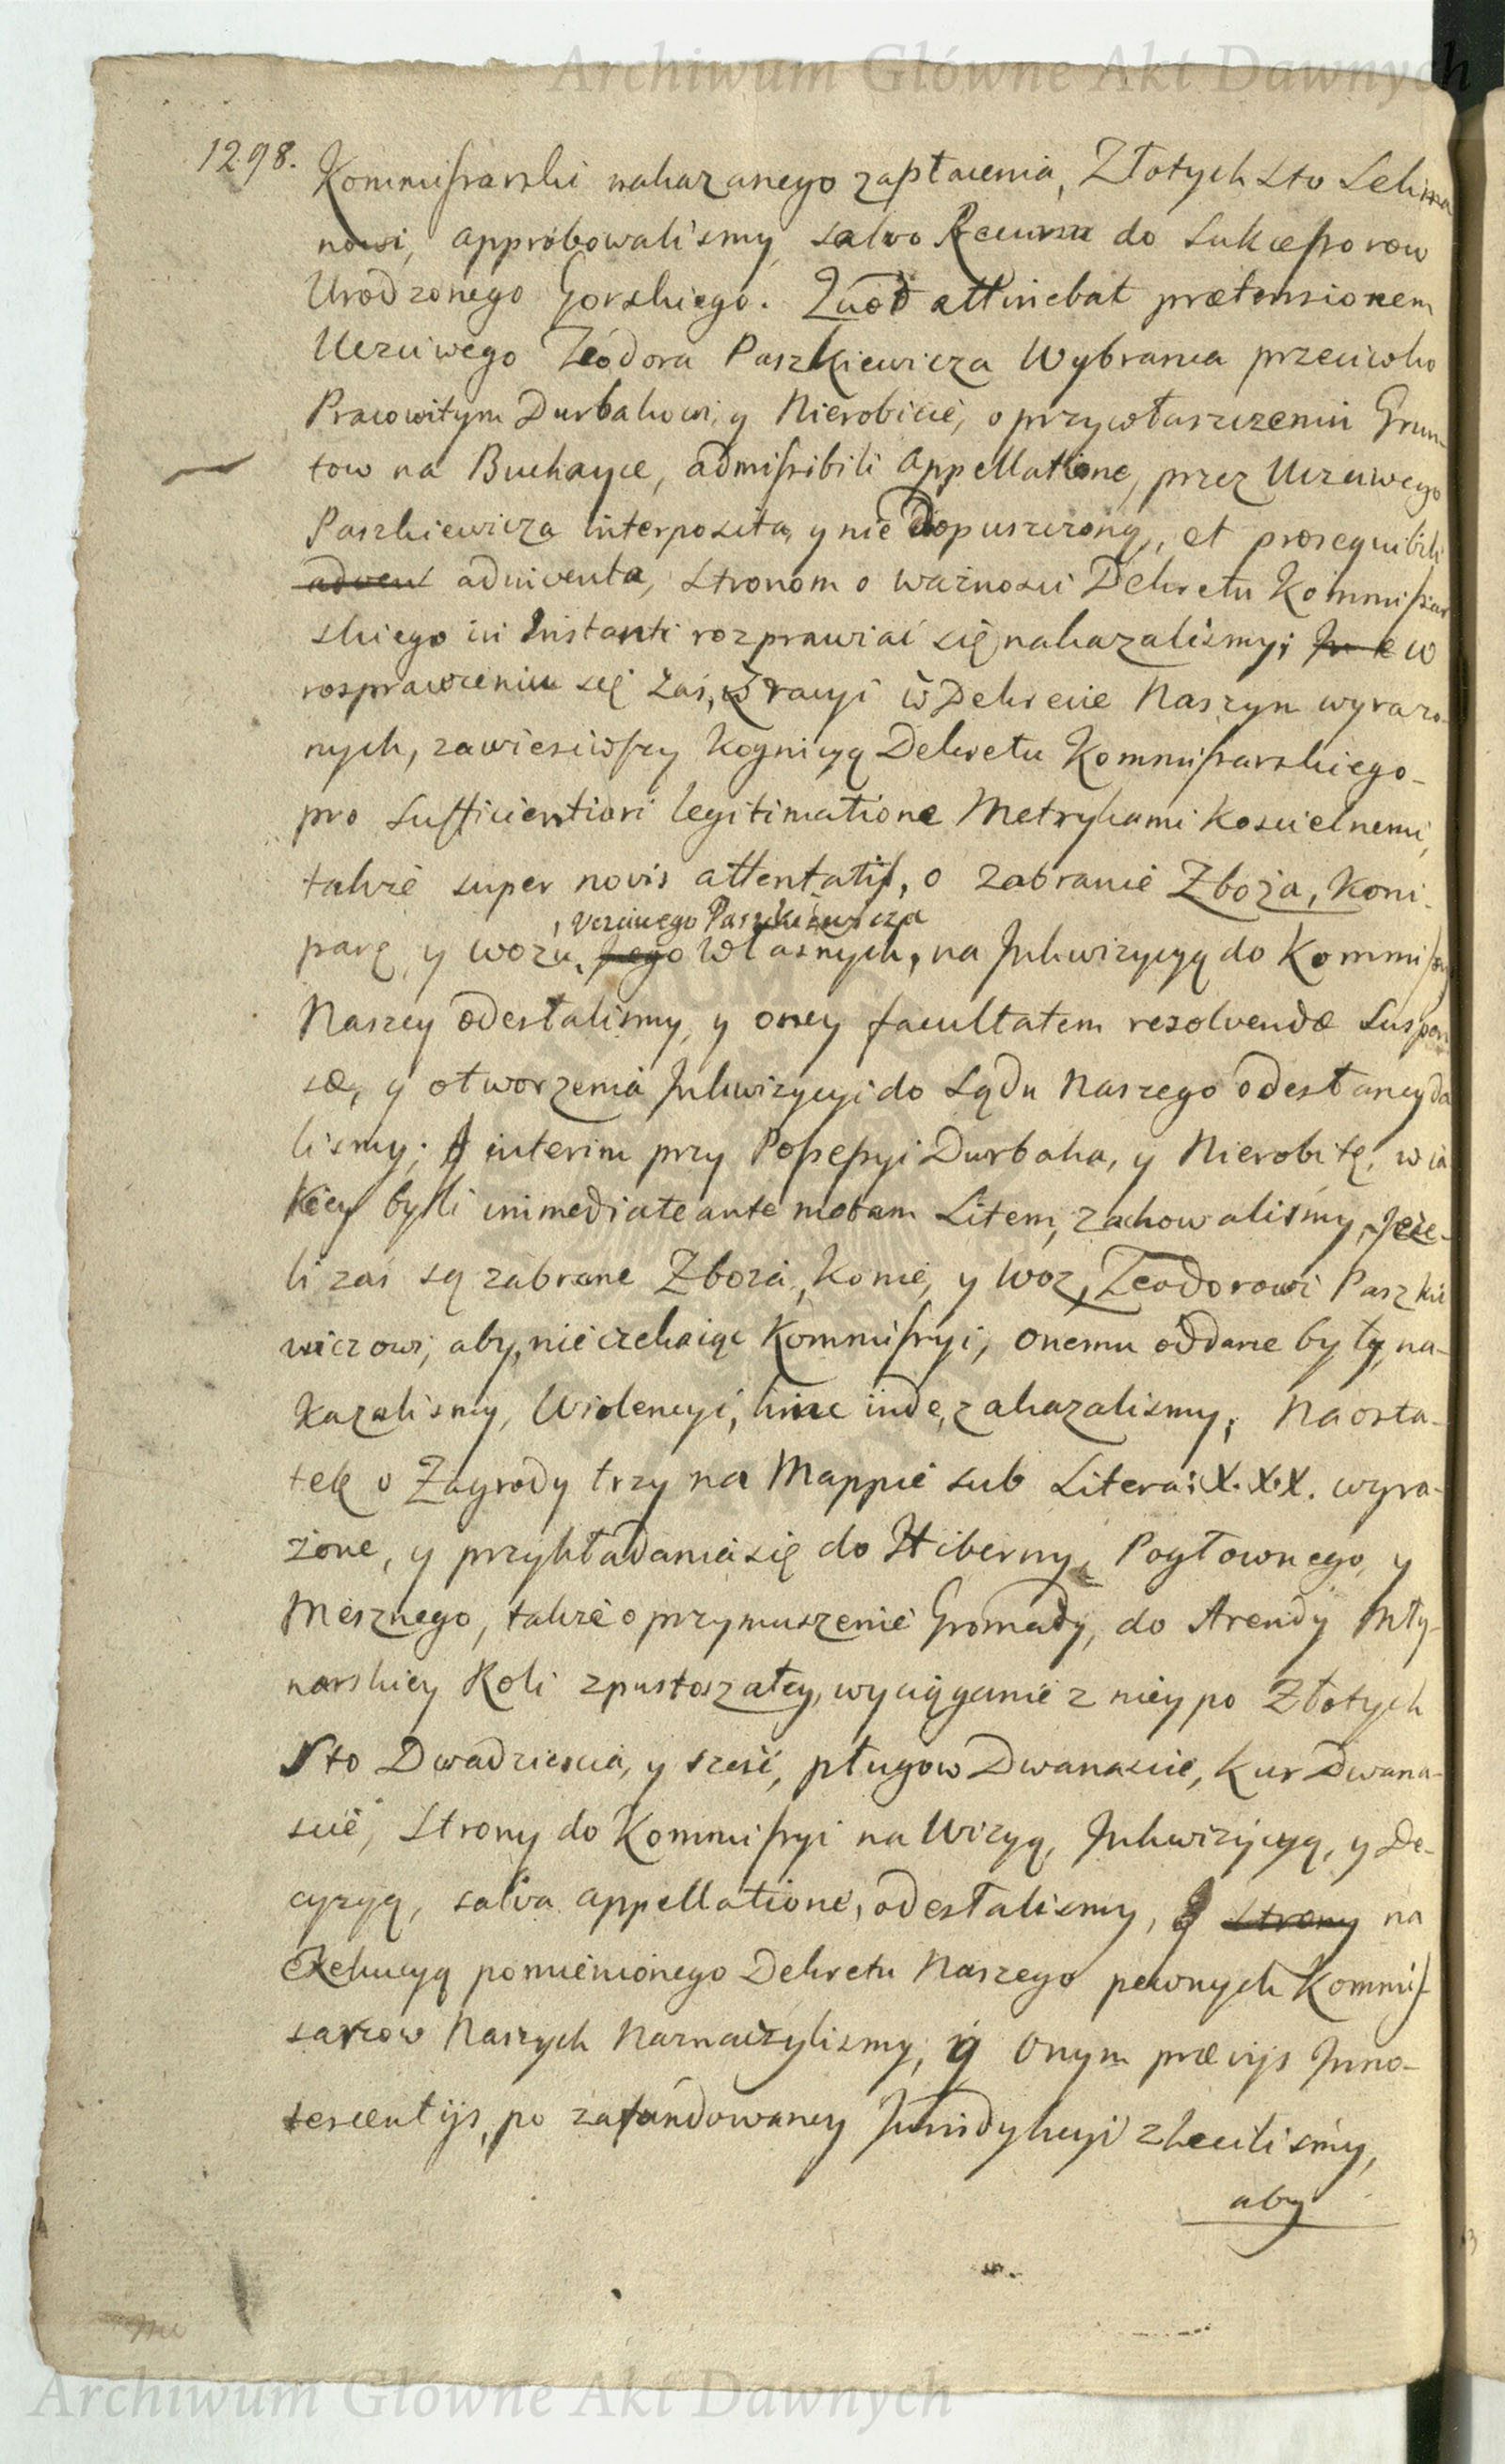 Archiwum Główne Akt Dawnych
1298.
Kommissarski nakazanego zapłacenia, Złotych sto Lehma
nowi, approbowalismy, salvo Recursu do Sukcessorow
Urodzonego Gorskiego. Quod attinebat prætensionem
Uczciwego Teodora Paszkiewicza Wybranca przeciwko
Pracowitym Durbakowi, y Nierobicie, o przywłaszczenie Grun-
tow na Buchayce, admissibili Appellatione, przez Uczciwego
Paszkiewicza interposita, y nie Dopuszczoną, et prosequibili
adven adinventa, stronom o ważnosci Dekretu Kommissar
skiego in Instanti rozprawiać się nakazalismy; w
rosprawieniu się zaś, z racyi w Dekrecie Naszym wyrażo-
nych, zawiesiwszy Kognicyą Dekretu Kommissarskiego
pro sufficientiori legitimatione Metrykami Koscielnemi,
także super novis attentatis, o zabranie Zboża, koni
, Uczciwego Paszkiewicza
parę, y wozu, Jego Własnych, na Inkwizycyą do Kommissy
Naszey odesłalismy, y oney facultatem resolvendæ suspen
sæ, y otworzenia Inkwizycyi do Sądu Naszego odesłaney da
lismy; A interim przy Possessyi Durbaka, y Nierobitę, w ia
kiey byli immediate ante motam Litem, zachowalismy, Jeże-
li zaś są zabrane Zboża, konie, y woz, Teodorowi Paszkie
wiczowi, aby, nie czekaiąc Kommissyi, onemu oddane były, na-
kazalismy, Violencyi, hinc inde, zakazalismy; Na osta-
tek o Zagrody trzy na Mappie sub Litera: X. X. X. wyra-
żone, y przykładania się do Hiberny, Pogłownego, y
Mesznego, także o przymuszenie Gromady, do Arendy Mły-
narskiey Roli zpustoszałey, wyciąganie z niey po Złotych
Sto Dwadziescia, y sześć, pługow Dwanascie, kur Dwana-
scie, Strony do Kommissyi na Wizyą, Inkwizycyą, y De-
cyzyą, salva appellatione, odesłalismy, y Strony na
Exekucyą pomienionego Dekretu Naszego pewnych Kommis-
sarzow Naszych Naznaczylismy, y onym prævijs Inno-
tescentijs, po zafundowaney Jurisdykcyi zlecilismy,
aby
Archiwum Główne Akt Dawnych